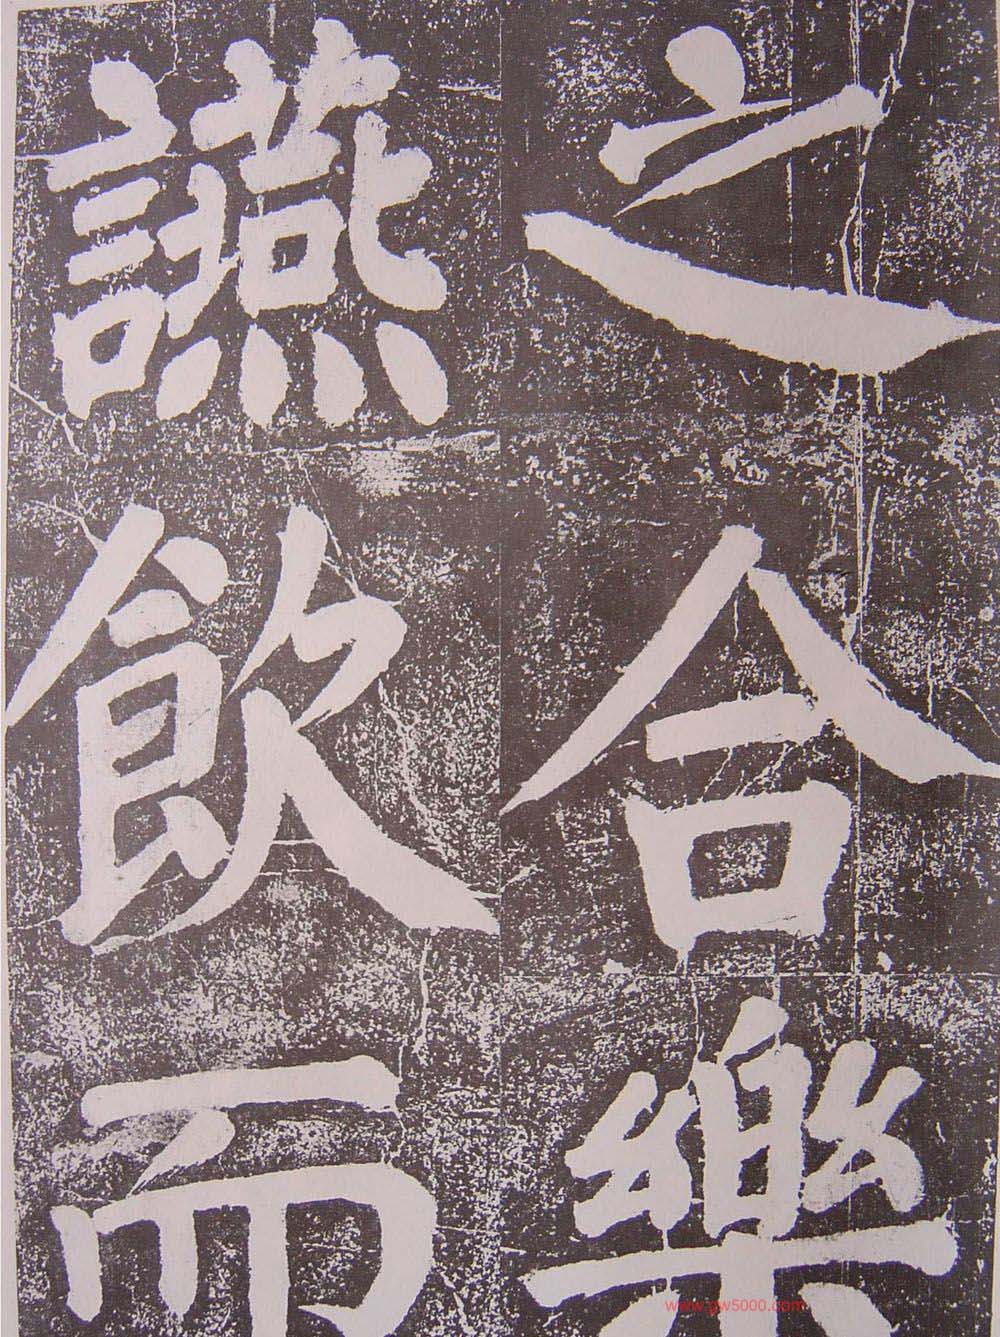 之合樂
讌飲而
www.gw5000.com